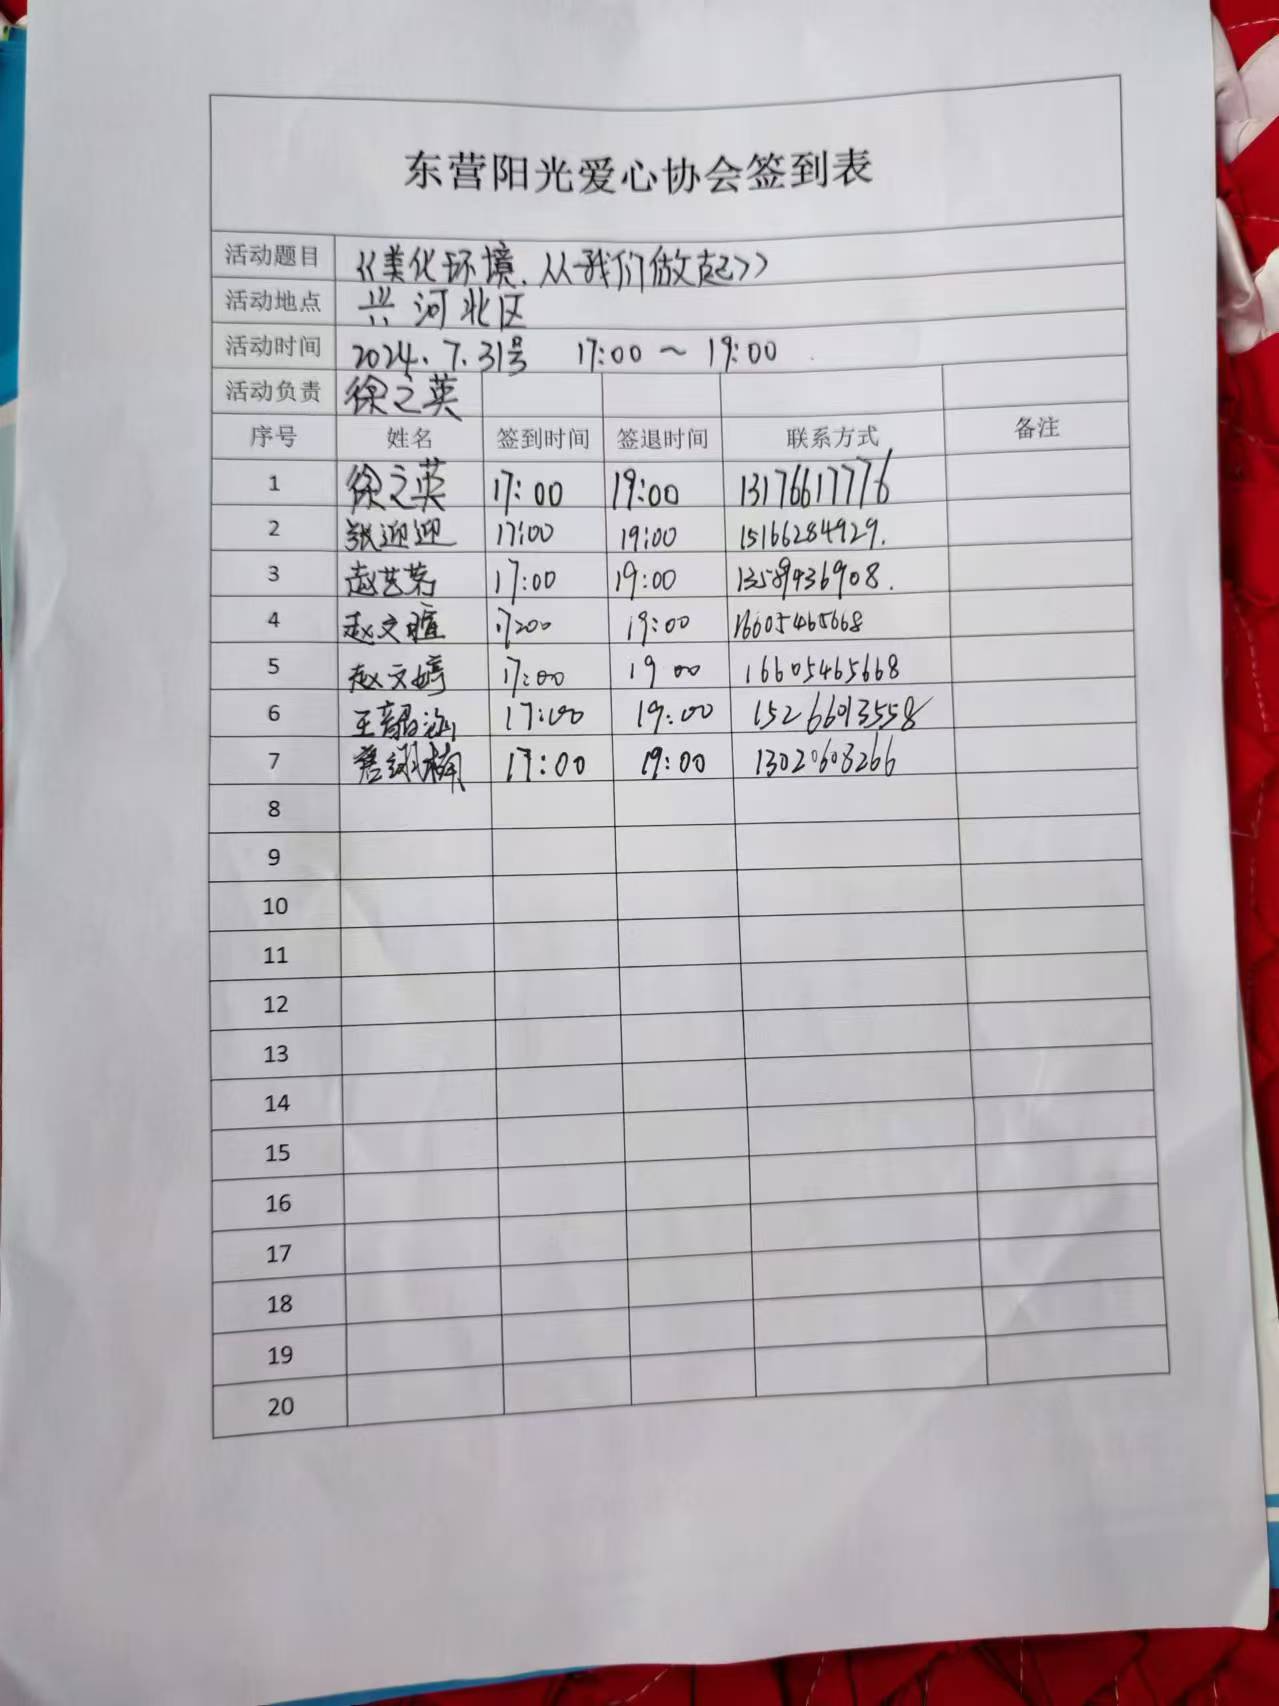 东营阳光爱心协会签到表
活动题目 《美化环境、从我们做起》
活动地点 兴河北区
活动时间 2024、7、31号 17:00 ~ 19:00
活动负责 徐之英
序号 姓名 签到时间 签退时间 联系方式 备注
1 徐之英 17:00 19:00 13176617776
2 张迎迎 17:00 19:00 15166284929.
3 赵艺茗 17:00 19:00 13589936908.
4 赵文暄 17:00 19:00 16605465668
5 赵文婷 17:00 19 00 16605465668
6 王韶涵 17:00 19:00 15266013558
7 17:00 19:00 13020608266
8
9
10
11
12
13
14
15
16
17
18
19
20